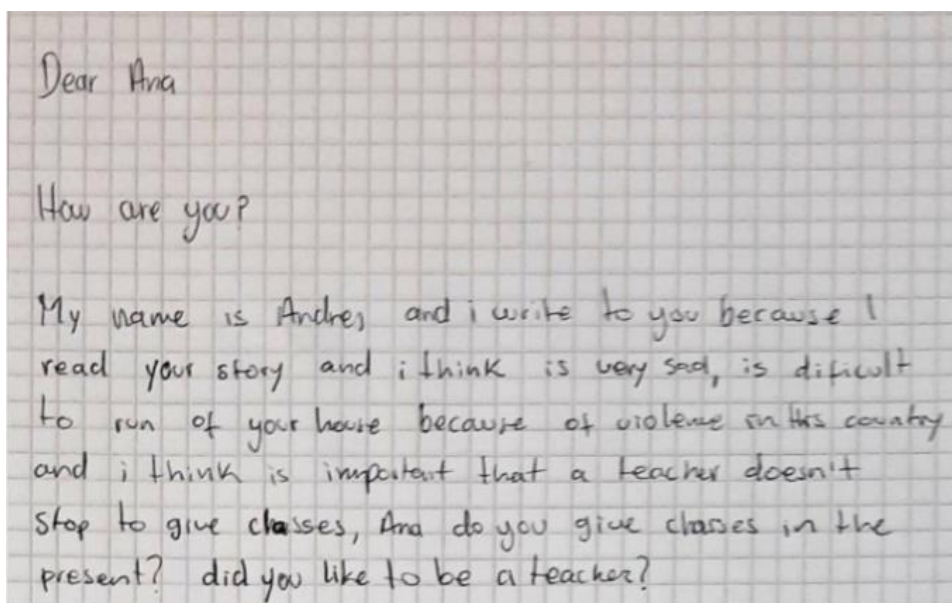 Dear Ana
How are you?
My name is Andres and i write to you because I
read your story and i think is very sad, is dificult
to run of your house because of violence in this country
and i think is important that a teacher doesn't
stop to give classes, Ana do you give classes in the
present? did you like to be a teacher?